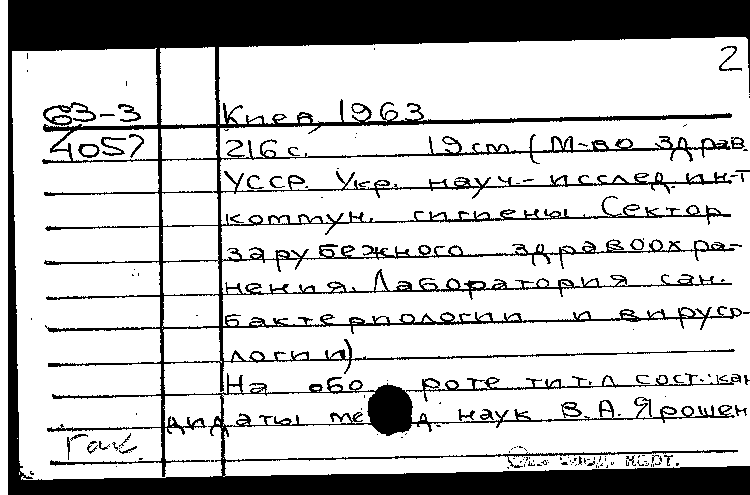 2
63-3 Киев, 1963
4057 216 с. 19 cm (М-во здрав
УССР. Укр. науч.-исслед. ин-т
коммун. гигиены. Сектор
зарубежного здравоохра-
нения. Лаборатория сан.
бактериологии и вирусо-
логии)
На обороте тит. л сост.: кан
дидаты мед. наук В.А. Ярошен
Гак.